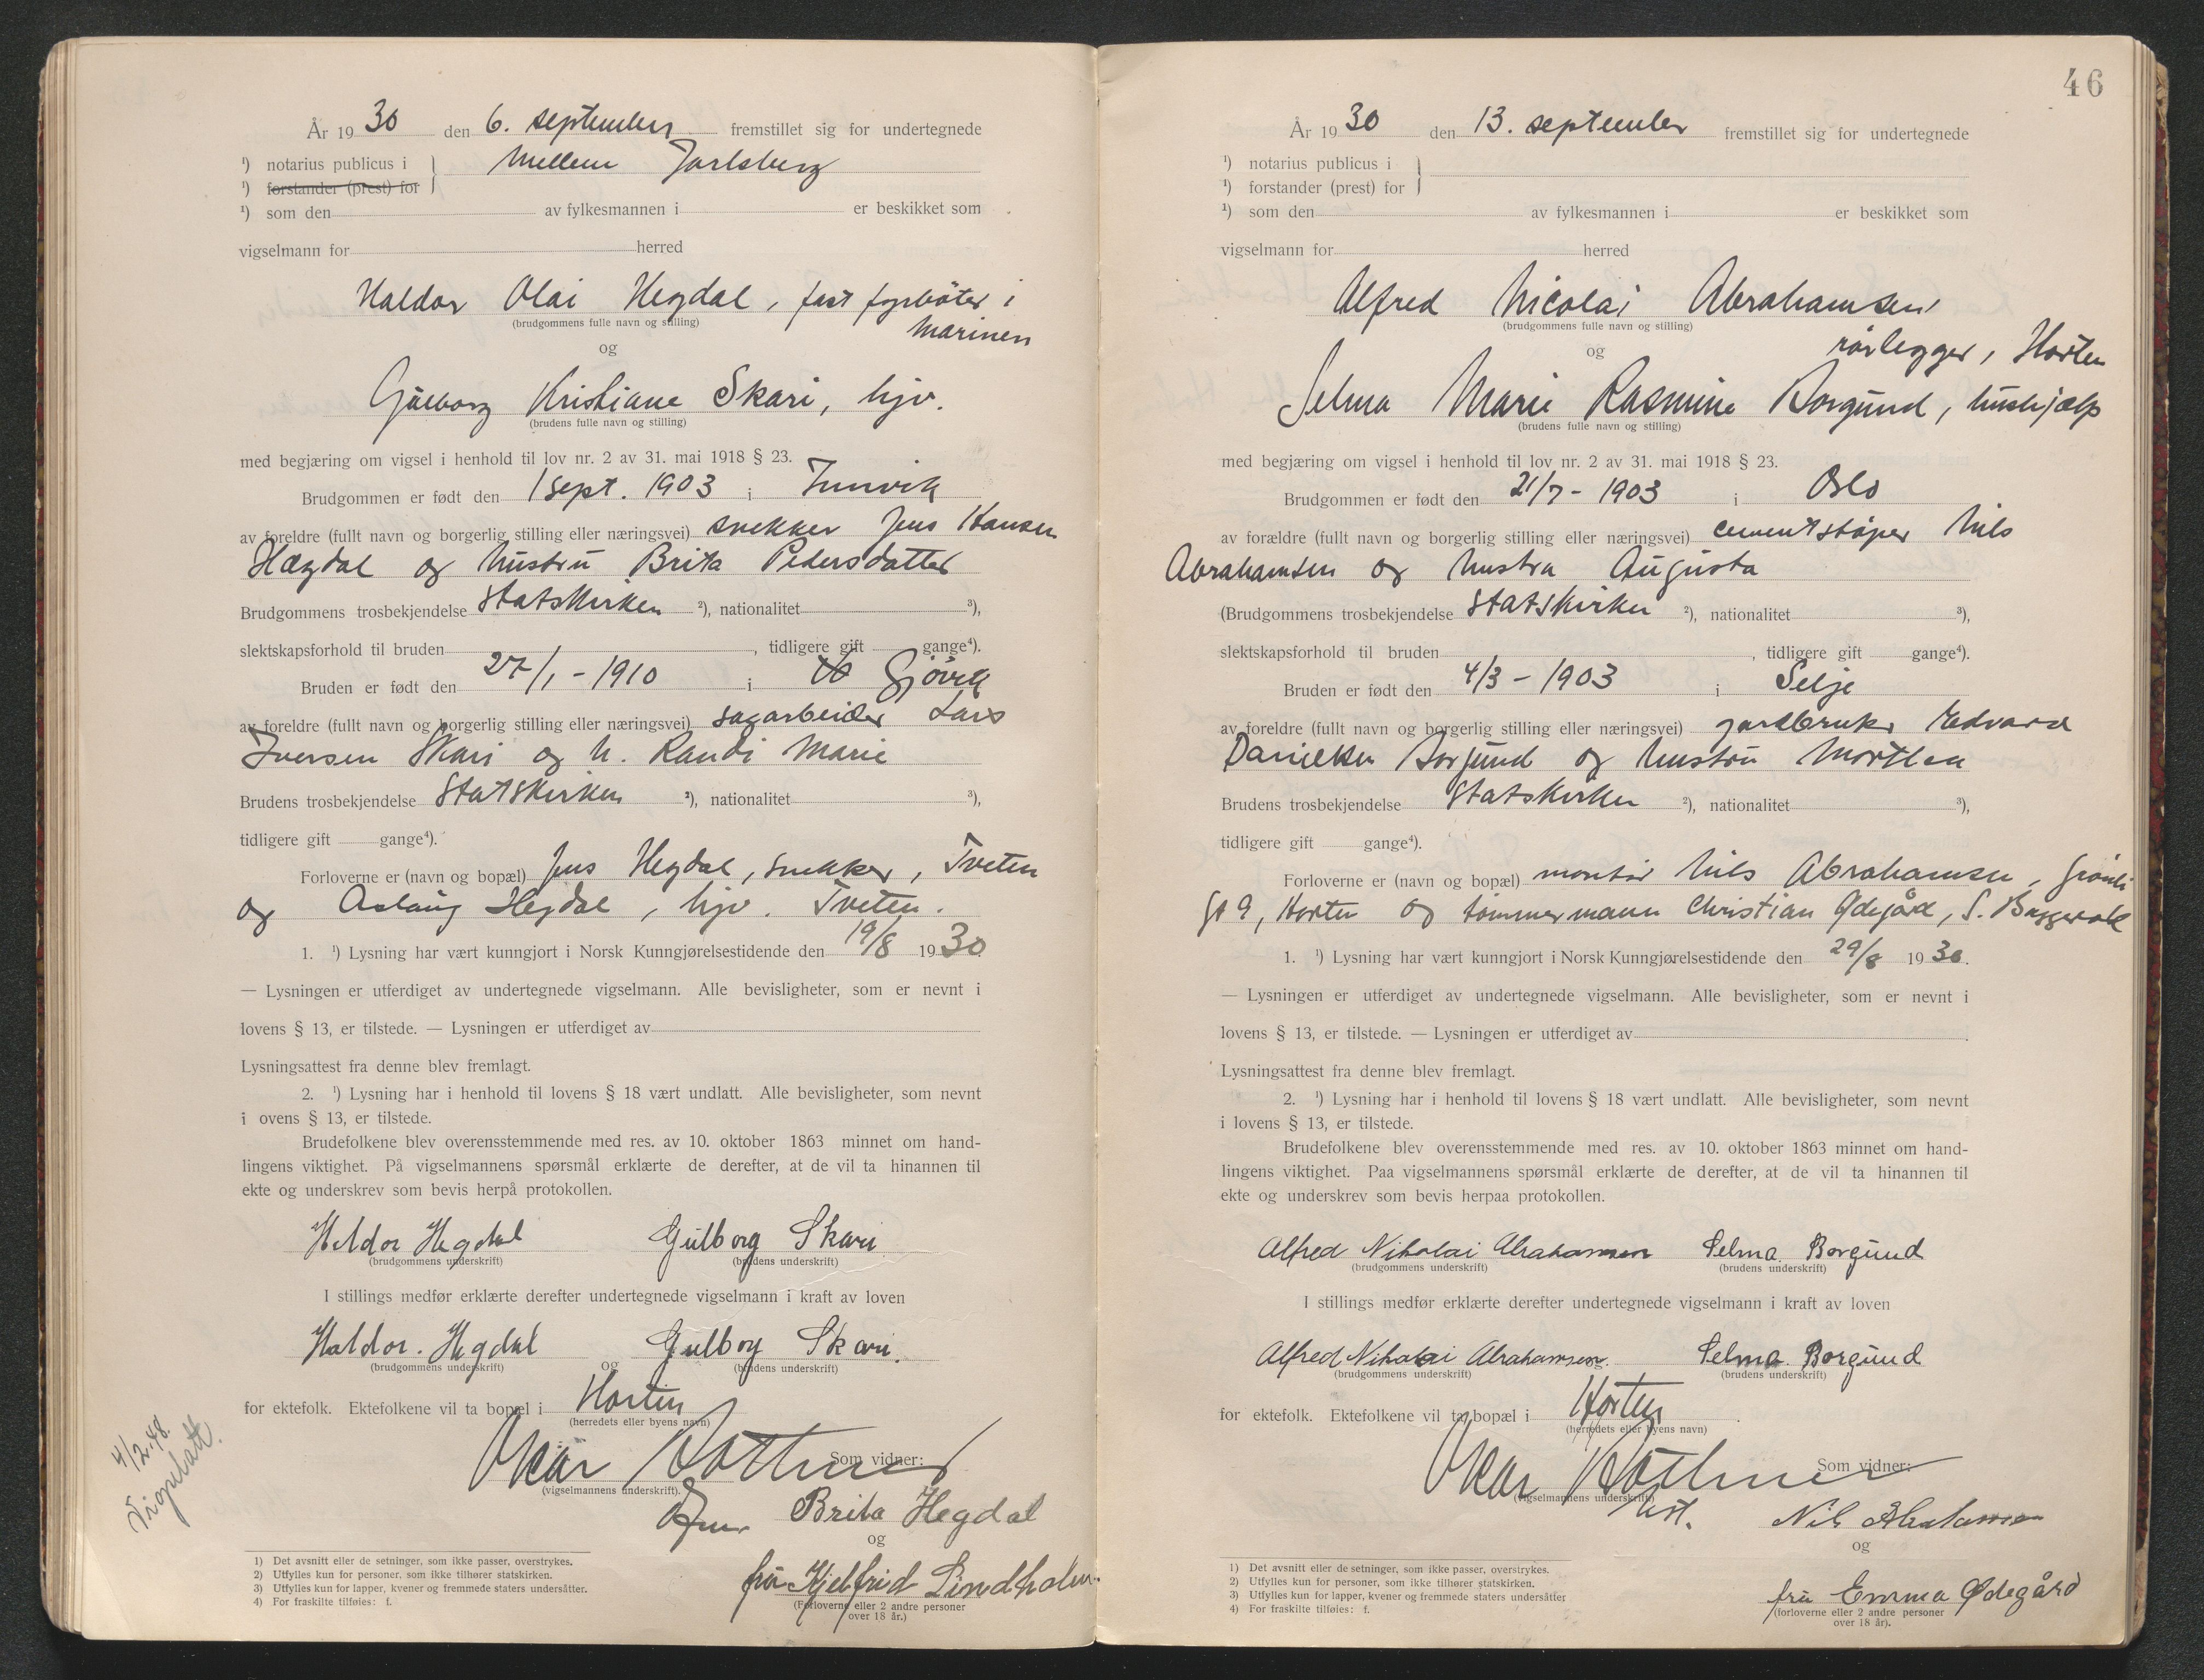 År 1930 den 6. september fremstillet sig for undertegnede
¹) notarius publicus i } Mellem Jarlsberg
¹) forstander (prest) for
¹) som den av fylkesmannen i er beskikket som
vigselmann for herred
Haldor Olai Hegdal, fast fyrbøter i
(brudgommens fulle navn og stilling)
Marinen
og
Gulborg Kristiane Skari, hjv.
(brudens fulle navn og stilling)
med begjæring om vigsel i henhold til lov nr. 2 av 31. mai 1918 § 23.
Brudgommen er født den 1 sept. 1903 i
av foreldre (fullt navn og borgerlig stilling eller næringsvei) snekker Jens Hansen
Hægdal og hustru Brita Pedersdatter
Brudgommens trosbekjendelse Statskirken ²), nationalitet ³),
slektskapsforhold til bruden , tidligere gift gange⁴).
Bruden er født den 27/1 - 1910 i Gjøvik
av foreldre (fullt navn og borgerlig stilling eller næringsvei) sagarbeider Lars
Iversen Skari og h. Randi Marie
Brudens trosbekjendelse Statskirken ²), nationalitet ³),
tidligere gift gange⁴).
Forloverne er (navn og bopæl) Jens Hegdal, snekker, Tveten
og Aslaug Hegdal, hjv. Tveten.
1. ¹) Lysning har vært kunngjort i Norsk Kunngjørelsestidende den 19/8 1930
— Lysningen er utferdiget av undertegnede vigselmann. Alle bevisligheter, som er nevnt i
lovens § 13, er tilstede. — Lysningen er utferdiget av
Lysningsattest fra denne blev fremlagt.
2. ¹) Lysning har i henhold til lovens § 18 vært undlatt. Alle bevisligheter, som nevnt
i ovens § 13, er tilstede.
Brudefolkene blev overensstemmende med res. av 10. oktober 1863 minnet om hand-
lingens viktighet. På vigselmannens spørsmål erklærte de derefter, at de vil ta hinannen til
ekte og underskrev som bevis herpå protokollen.
Haldor Hegdal Gulborg Skari
(brudgommens underskrift) (brudens underskrift)
I stillings medfør erklærte derefter undertegnede vigselmann i kraft av loven
Haldor. Hegdal og Gulborg Skari.
(brudgommens underskrift) (brudens underskrift)
for ektefolk. Ektefolkene vil ta bopæl i Horten
(herredets eller byens navn)
4/2.48.
Oscar Som vidner:
(vigselmannens underskrift).
Brita Hegdal
og
fru Hjelfrid Lindholm.
(Forloverne eller 2 andre personer
over 18 år.)
1) Det avsnitt eller de setninger, som ikke passer, overstrykes.
2) Utfylles kun for personer, som ikke tilhører statskirken.
3) Utfylles kun for lapper, kvener og fremmede staters undersåtter.
4) For fraskilte tilføies: f.
46
År 1930 den 13. september fremstillet sig for undertegnede
¹) notarius publicus i }
¹) forstander (prest) for
¹) som den av fylkesmannen i er beskikket som
vigselmann for herred
Alfred Nicolai Abrahamsen,
(brudgommens fulle navn og stilling)
rørlegger, Horten
og
Selma Marie Rasmine Borgund, hushjælp
(brudens fulle navn og stilling)
med begjæring om vigsel i henhold til lov nr. 2 av 31. mai 1918 § 23.
Brudgommen er født den 21/7 - 1903 i Oslo
av forældre (fullt navn og borgerlig stilling eller næringsvei) cementstøper Nils
Abrahamsen og hustru Augusta
(Brudgommens trosbekjendelse Statskirken ²), nationalitet ³),
slektskapsforhold til bruden , tidligere gift gange⁴).
Bruden er født den 4/3 - 1903 i Selje
av foreldre (fullt navn og borgerlig stilling eller næringsvei) gardbruker Edvard
Danielsen Borgund og hustru
Brudens trosbekjendelse Statskirken ²), nationalitet ³),
tidligere gift gange⁴).
Forloverne er (navn og bopæl) montør Nils Abrahamsen, Grønli
gt 9, Horten og tømmermann Christian Ødegård, S.
1. ¹) Lysning har vært kunngjort i Norsk Kunngjørelsestidende den 29/8 1930.
— Lysningen er utferdiget av undertegnede vigselmann. Alle bevisligheter, som er nevnt i
lovens § 13, er tilstede. — Lysningen er utferdiget av
Lysningsattest fra denne blev fremlagt.
2. ¹) Lysning har i henhold til lovens § 18 vært undlatt. Alle bevisligheter, som nevnt
i lovens § 13, er tilstede.
Brudefolkene blev overensstemmende med res. av 10. oktober 1863 minnet om hand-
lingens viktighet. Paa vigselmannens spørsmål erklærte de derefter, at de vil ta hinannen til
ekte og underskrev som bevis herpaa protokollen.
Alfred Nikolai Abrahamsen Selma Borgund
(brudgommens underskrift) (brudens underskrift)
I stillings medfør erklærte derefter undertegnede vigselmann i kraft av loven
Alfred Nikolai Abrahamsen. Selma Borgund
(brudgommens underskrift) (brudens underskrift)
for ektefolk. Ektefolkene vil ta bopæl i Horten
(herredets eller byens navn)
Oscar Som vidner:
(vigselmannens underskrift)
Nils Abrahamsen
og
fru Emma Ødegård
(forloverne eller 2 andre personer
over 18 år).
1) Det avsnitt eller de setninger, som ikke passer, overstrykes.
2) Utfylles kun for personer, som ikke tilhører statskirken.
3) Utfylles kun for lapper, kvener og fremmede staters undersåtter
4) For fraskilte tilføies: f.